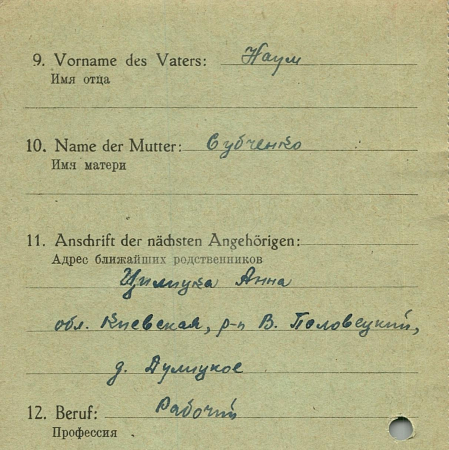 9. Vorname des Vaters: Наум
Имя отца
10. Name der Mutter: Субченко
Имя матери
11. Anschrift der nächsten Angehörigen:
Адрес ближайших родственников
Цилицка Анна
обл. Киевская, р-н В. Половецкий,
д. Дулицкое
12. Beruf: Рабочий
Профессия